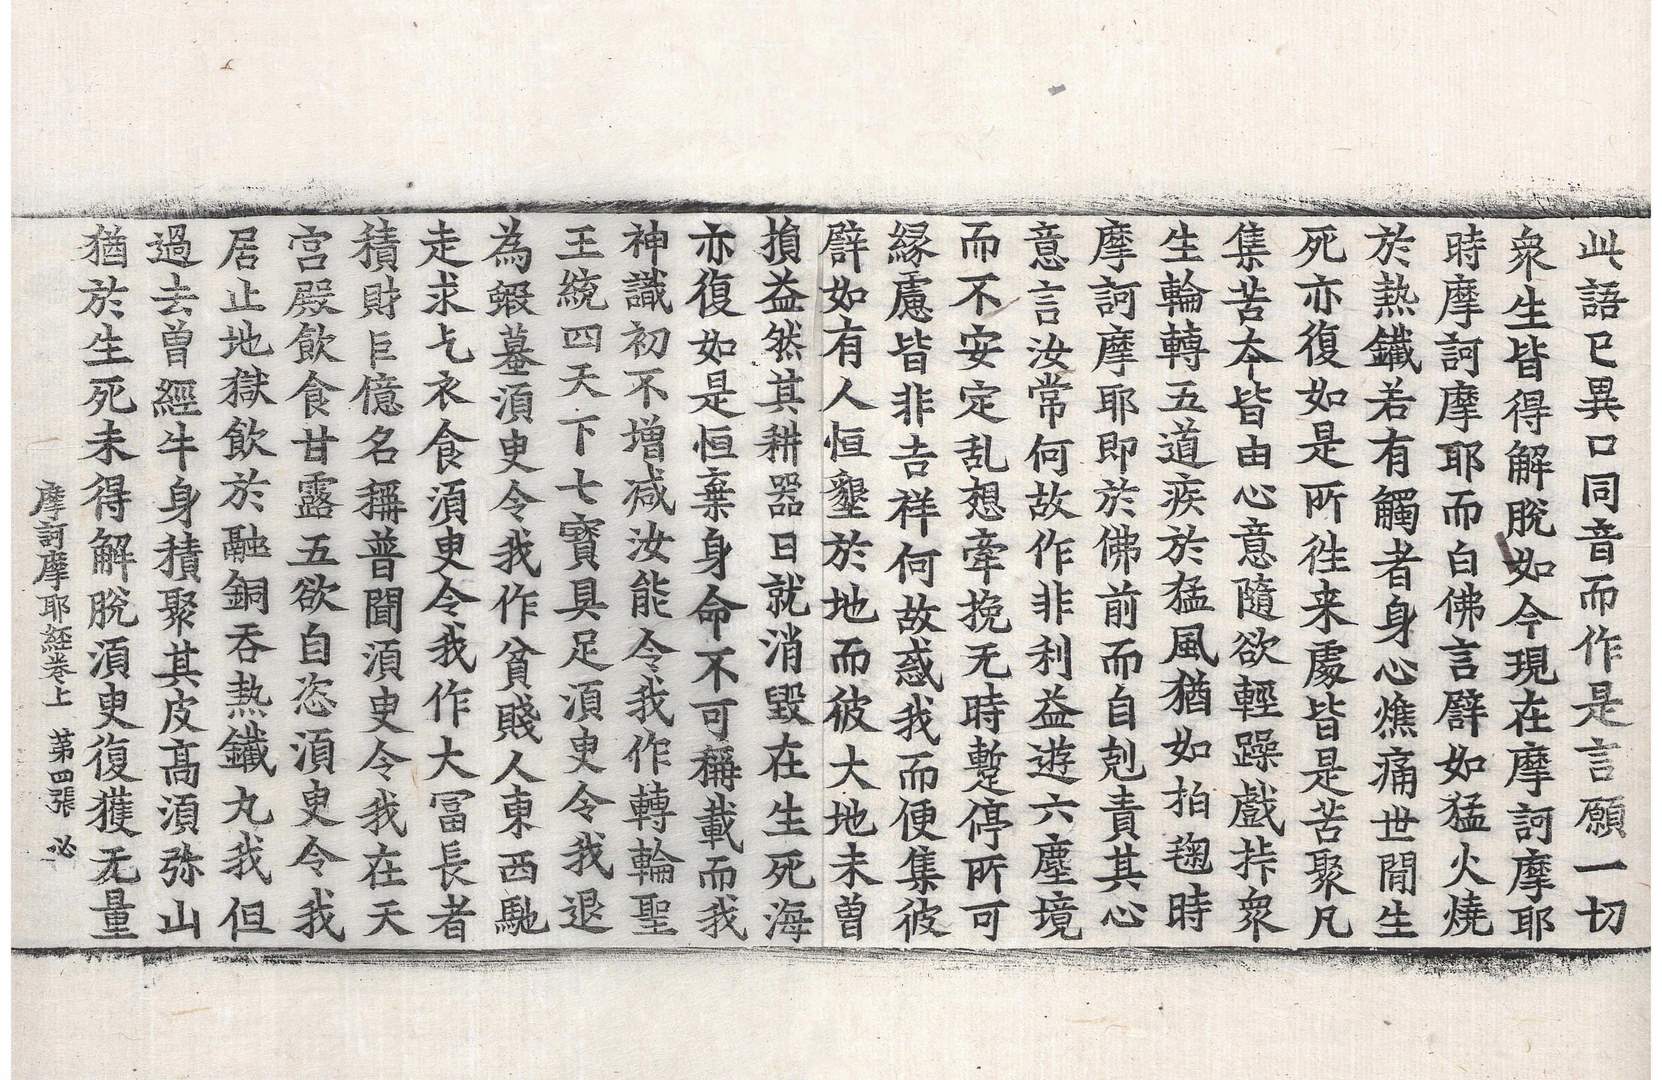 此語已異口同音而作是言願一切
衆生皆得解脫如今現在摩訶摩耶
時摩訶摩耶而白佛言譬如猛火燒
於熱鐵若有觸者身心燋痛世間生
死亦復如是所徃来處皆是苦聚凡
集苦夲皆由心意隨欲輕躁戲挊衆
生輪轉五道疾於猛風猶如拍毱時
摩訶摩耶即於佛前而自剋責其心
意言汝常何故作非利益遊六塵境
而不安定乱想牽挽无時蹔停所可
緣慮皆非吉祥何故惑我而便集彼
譬如有人恒墾於地而彼大地未曽
損益然其耕器日就消毀在生死海
亦復如是恒棄身命不可稱載而我
神識初不增减汝能令我作轉輪聖
王統四天下七寶具足湏臾令我退
為蝦蟇湏臾令我作貧賤人東西馳
走求乞衣食湏臾令我作大冨長者
積財巨億名稱普聞湏臾令我在天
宮殿飮食甘露五欲自恣湏臾令我
居止地獄飮於融銅吞熱鐵丸我但
過去曽經牛身積聚其皮高湏弥山
猶於生死未得解脫湏臾復獲无量
摩訶摩耶経卷上 第四張 必